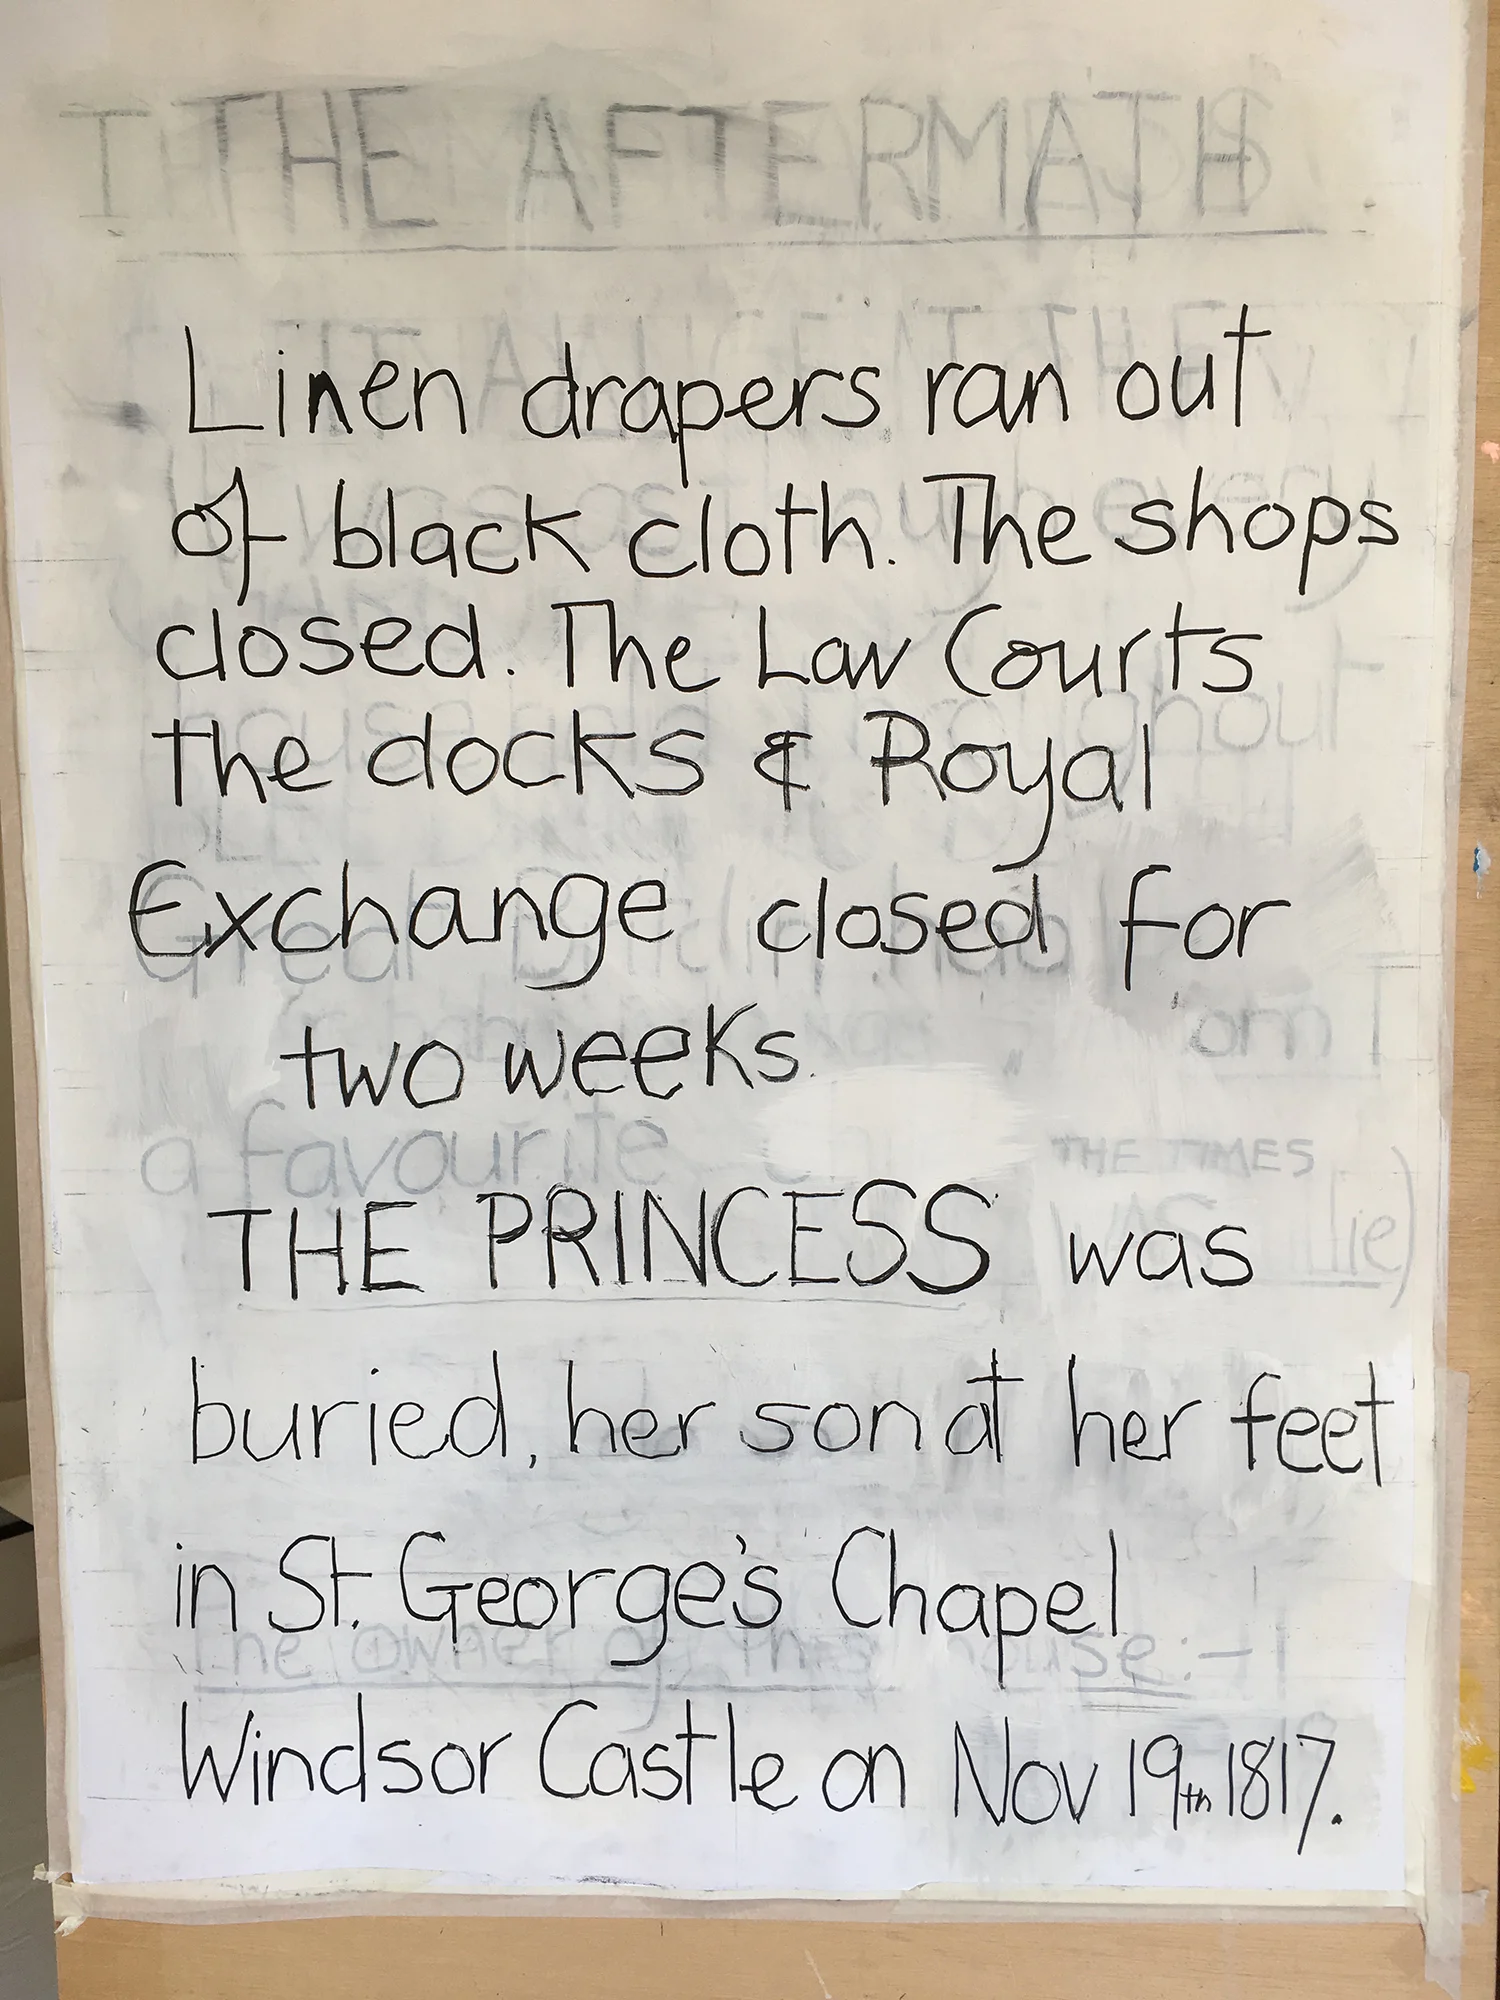 THE AFTERMATH
Linen drapers ran out
of black cloth. The shops
closed. The Law Courts
the docks & Royal
Exchange closed for
two weeks.
a favourite
THE TIMES
THE PRINCESS was
lie)
buried, her son at her feet
in St. George's Chapel
The owner of this house:-
Windsor Castle on Nov 19th 1817.